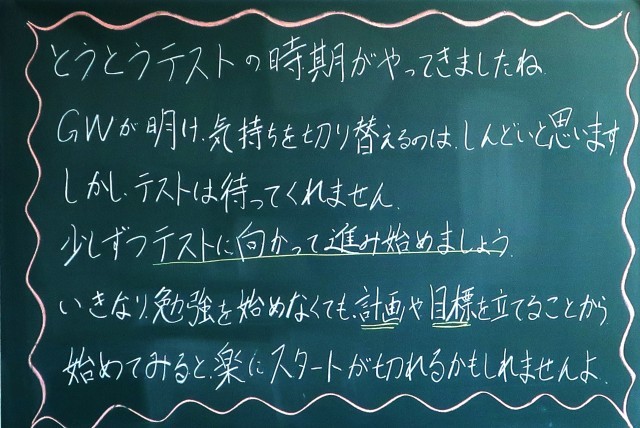 とうとうテストの時期がやってきましたね
GWが明け、気持ちを切り替えるのは、しんどいと思います
しかし、テストは待ってくれません。
少しずつテストに向かって進み始めましょう。
いきなり、勉強を始めなくても、計画や目標を立てることから
始めてみると、楽にスタートが切れるかもしれませんよ。